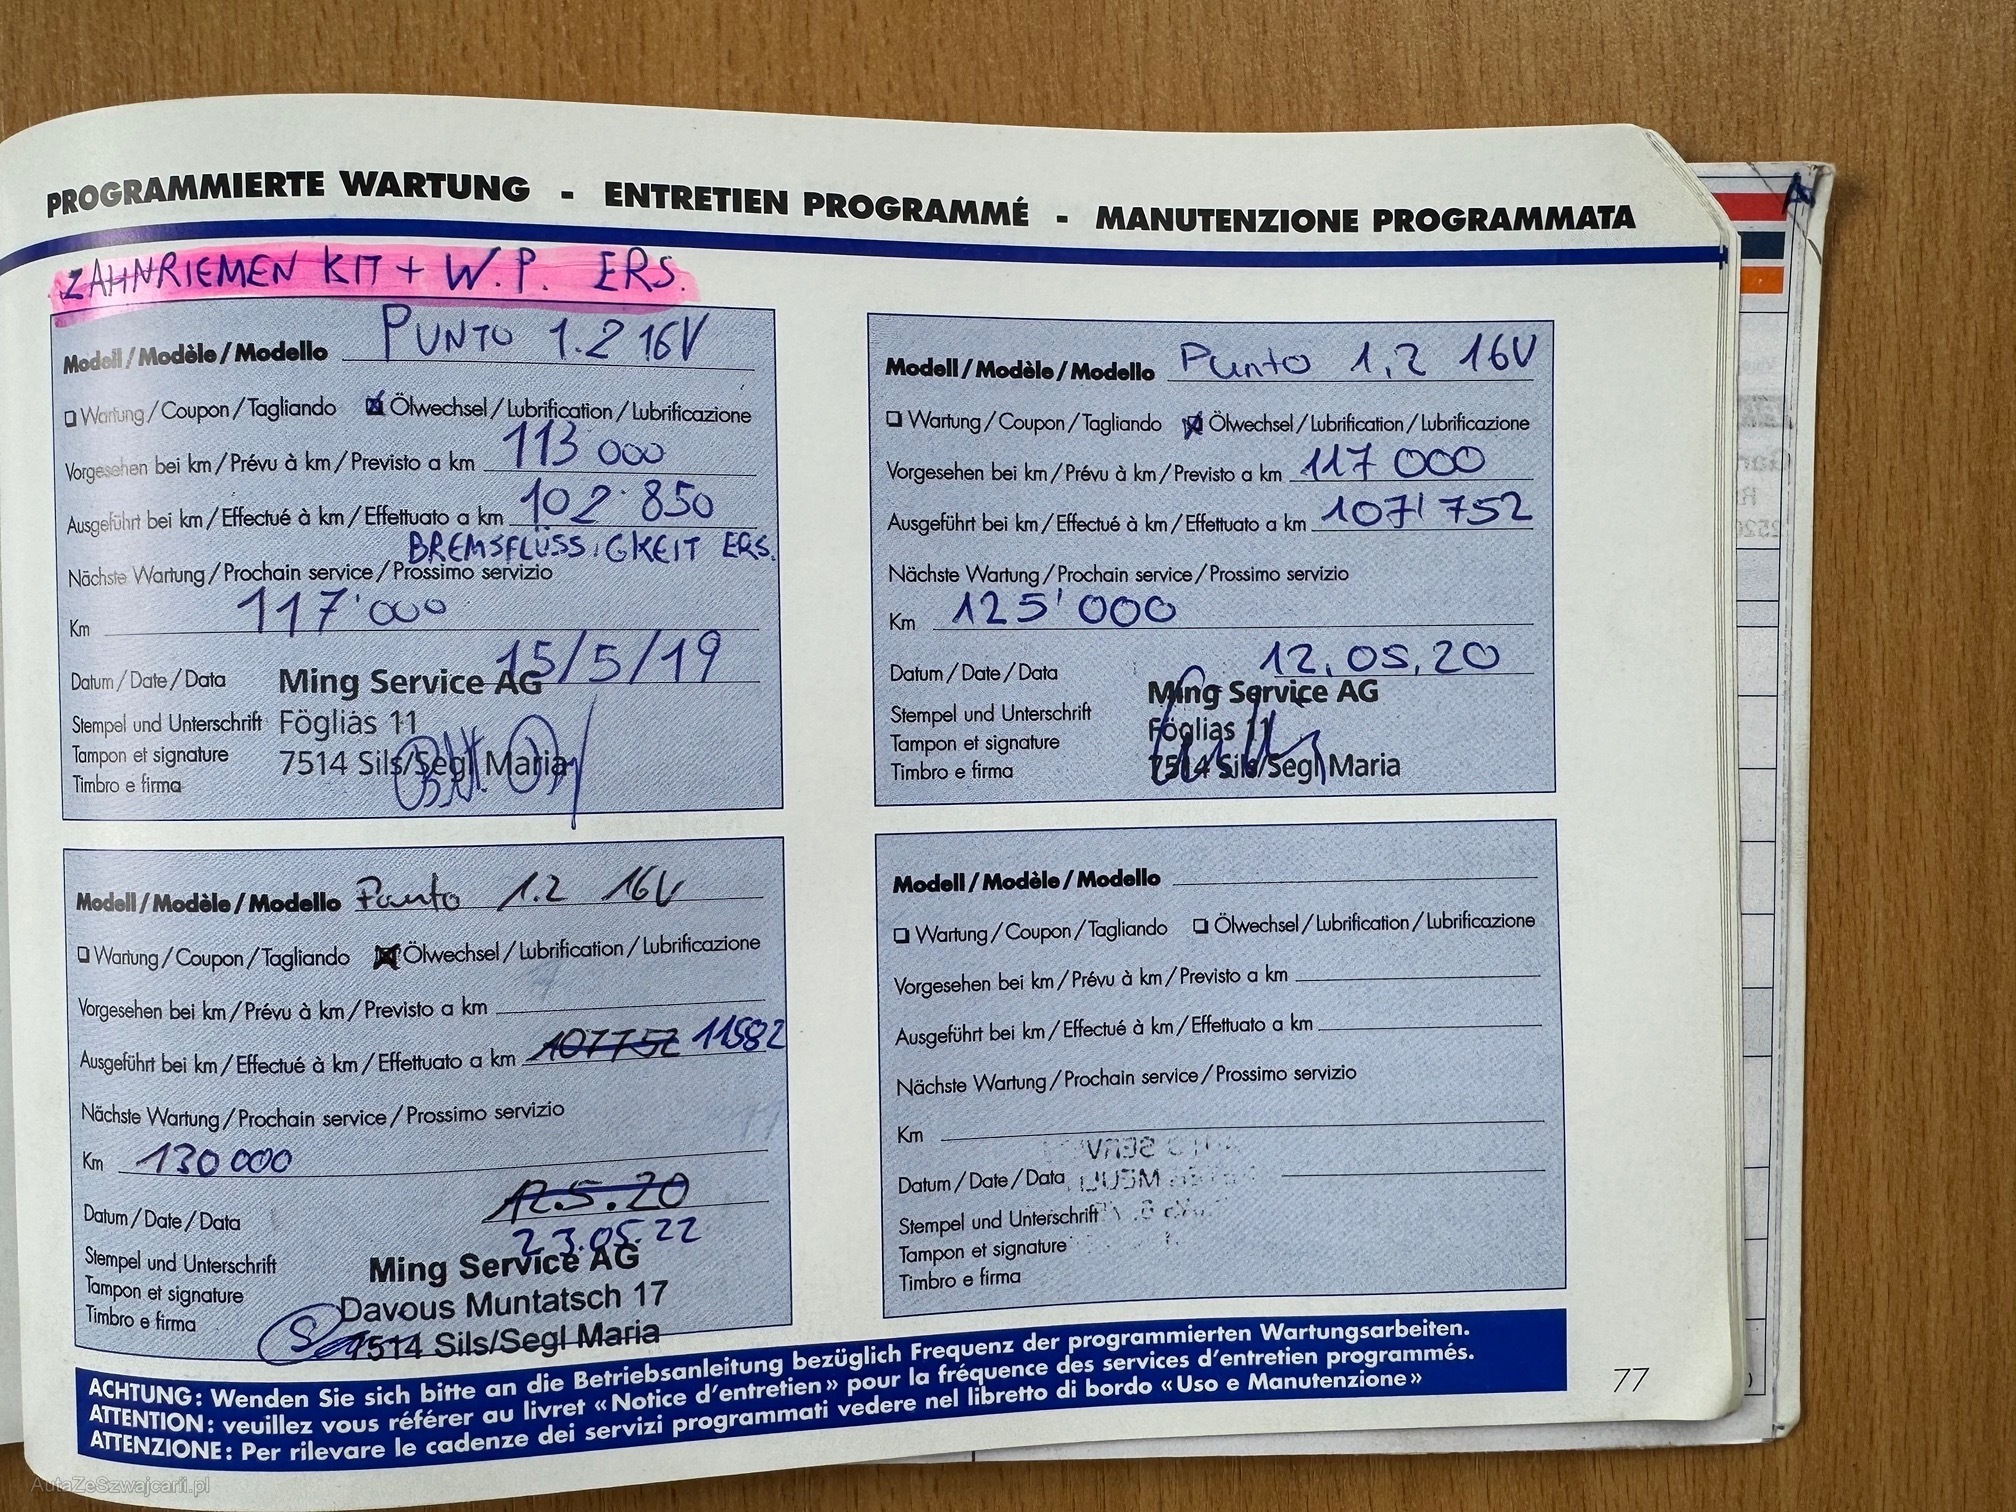 PROGRAMMIERTE WARTUNG - ENTRETIEN PROGRAMMÉ - MANUTENZIONE PROGRAMMATA
ZAHNRIEMEN KIT + W.P. ERS.
Modell/Modèle/Modello PUNTO 1.2 16V
Wartung/Coupon/Tagliando Ölwechsel/Lubrification/Lubrificazione
Vorgesehen bei km/Prévu à km/Previsto a km 113 000
Ausgeführt bei km/Effectué à km/Effettuato a km 102'850
BREMSFLÜSSIGKEIT ERS.
Nächste Wartung/Prochain service/Prossimo servizio
Km 117'000
Datum/Date/Data 15/5/19
Ming Service AG
Stempel und Unterschrift Föglias 11
Tampon et signature 7514 Sils/Segl Maria
Timbro e firma
Modell/Modèle/Modello Punto 1,2 16V
Wartung/Coupon/Tagliando Ölwechsel/Lubrification/Lubrificazione
Vorgesehen bei km/Prévu à km/Previsto a km 117 000
Ausgeführt bei km/Effectué à km/Effettuato a km 107'752
Nächste Wartung/Prochain service/Prossimo servizio
Km 125'000
Datum/Date/Data 12.05.20
Ming Service AG
Stempel und Unterschrift Föglias 11
Tampon et signature
Timbro e firma 7514 Sils/Segl Maria
Modell/Modèle/Modello Punto 1.2 16V
Wartung/Coupon/Tagliando Ölwechsel/Lubrification/Lubrificazione
Vorgesehen bei km/Prévu à km/Previsto a km
Ausgeführt bei km/Effectué à km/Effettuato a km 107752 11582
Nächste Wartung/Prochain service/Prossimo servizio
Km 130 000
12.5.20
Datum/Date/Data 23.05.22
Stempel und Unterschrift Ming Service AG
Tampon et signature Davous Muntatsch 17
Timbro e firma 7514 Sils/Segl Maria
Modell/Modèle/Modello
Wartung/Coupon/Tagliando Ölwechsel/Lubrification/Lubrificazione
Vorgesehen bei km/Prévu à km/Previsto a km
Ausgeführt bei km/Effectué à km/Effettuato a km
Nächste Wartung/Prochain service/Prossimo servizio
Km
Datum/Date/Data
Stempel und Unterschrift
Tampon et signature
Timbro e firma
ACHTUNG: Wenden Sie sich bitte an die Betriebsanleitung bezüglich Frequenz der programmierten Wartungsarbeiten.
ATTENTION: veuillez vous référer au livret «Notice d'entretien» pour la fréquence des services d'entretien programmés.
ATTENZIONE: Per rilevare le cadenze dei servizi programmati vedere nel libretto di bordo «Uso e Manutenzione»
77
AutaZeSzwajcarii.pl